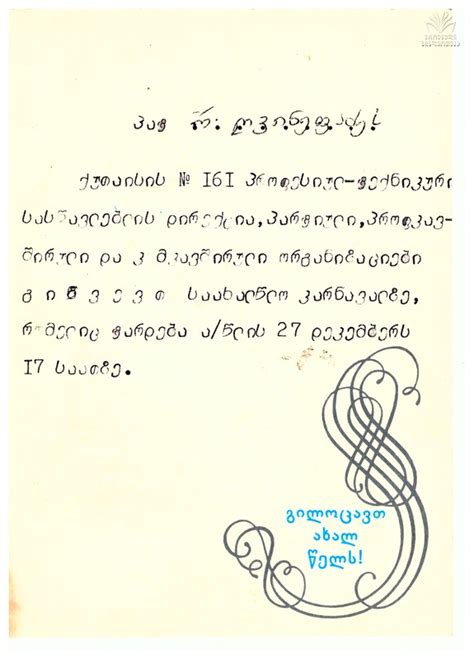 პატ
ქუთაისის № 161 პროფესიულ-ტექნიკური
სასწავლებლის დირექცია, პარტიული, პროფკავ-
შირული და კ მკავშირული ორგანიზაციები
გ ი წ ვ ე ვ თ საახალწლო კარნავალზე,
რომელიც ტარდება ა/წლის 27 დეკემბერს
17 საათზე.
გილოცავთ
ახალ
წელს!